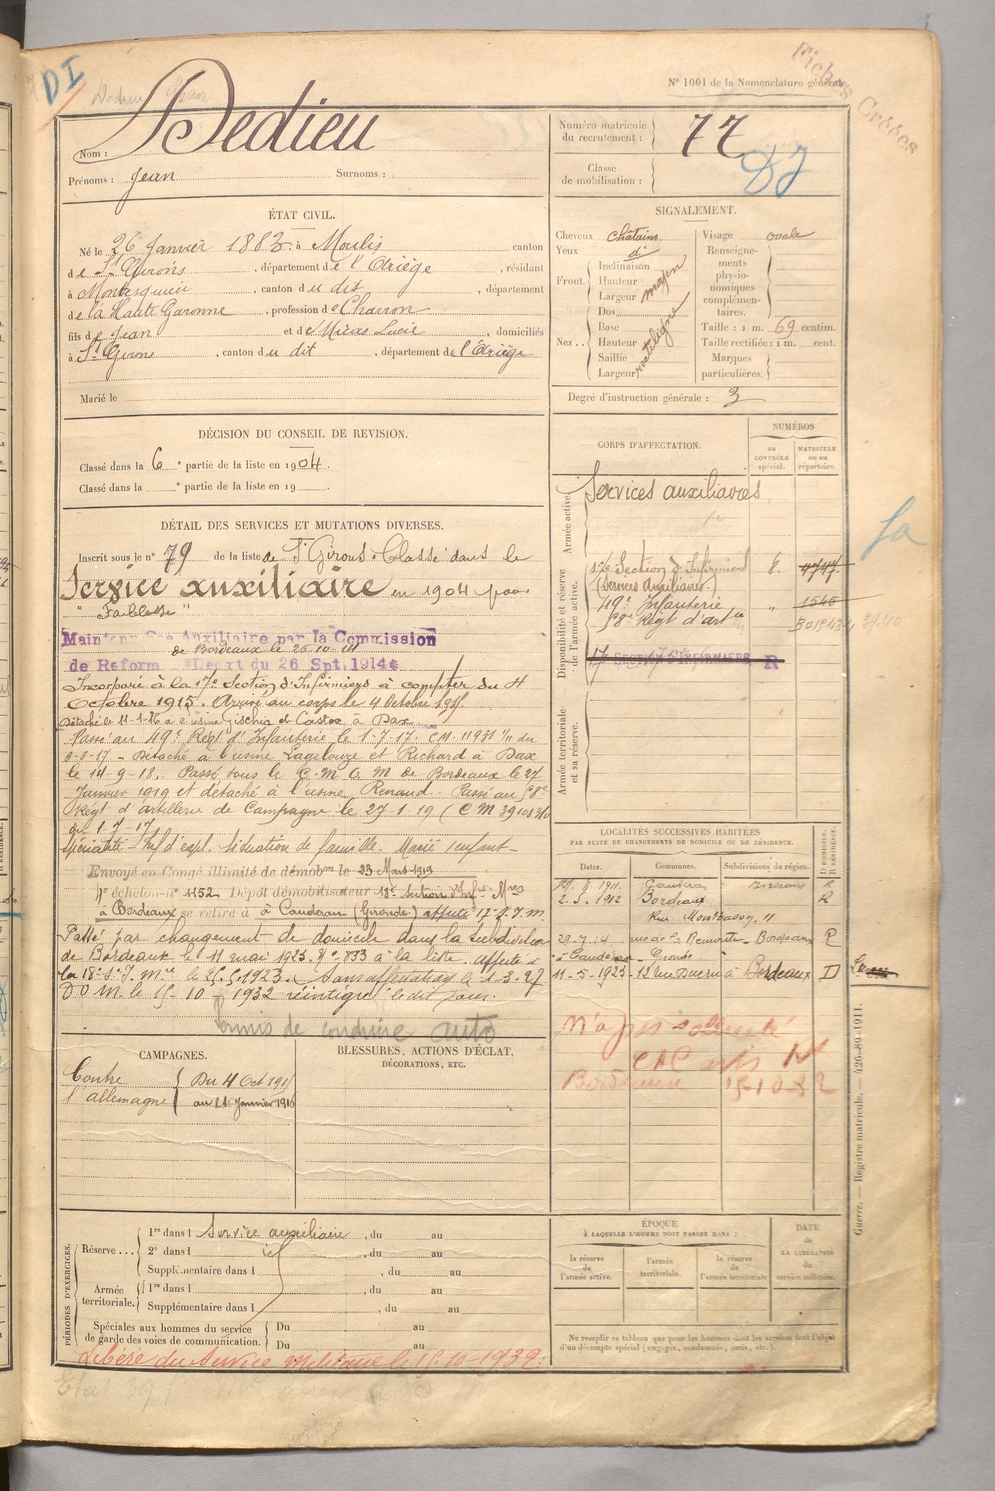 DI
N° 1001 de la Nomenclature générale
Fiches Créées
Nom : Dedieu
Prénoms : Jean Surnoms :
Numéro matricule du recrutement : 77
Classe de mobilisation :
ÉTAT CIVIL.
Né le 26 Janvier 1883 à Moulis canton
de St Girons, département de l'Ariège, résidant
à Montesquieu, canton du dit, département
de la Haute Garonne, profession de Charron
fils de Jean et de Miras Lucie, domiciliés
à St Girons, canton du dit, département de l'Ariège
Marié le
SIGNALEMENT.
Cheveux châtains
Yeux d°
Front. Inclinaison
Hauteur
Largeur
moyen
Nez .. Dos
Base
Hauteur
Saillie
Largeur
rectiligne
Visage ovale
Renseignements physionomiques complémentaires.
Taille : 1 m. 69 centim.
Taille rectifiée : 1 m. cent.
Marques particulières.
Degré d'instruction générale : 3
DÉCISION DU CONSEIL DE REVISION.
Classé dans la 6 e partie de la liste en 1904.
Classé dans la e partie de la liste en 19
CORPS D'AFFECTATION.
NUMÉROS
AU CONTRÔLE spécial.
MATRICULE OU AU répertoire.
Armée active.
Services auxiliaires
Disponibilité et réserve de l'armée active.
17e Section d'Infirmiers 8. 4747
(Services Auxiliaires)
49e Infanterie " 1545
58e Régt d'artie
SECTION D'INFIRMIERS R
Armée territoriale et sa réserve.
DÉTAIL DES SERVICES ET MUTATIONS DIVERSES.
Inscrit sous le n° 79 de la liste de St Girons. Classé dans le
Service auxiliaire en 1904 pour
"Faiblesse"
Maintenu Sce Auxiliaire par la Commission
de Bordeaux le 26-10-14
de Réforme Décret du 26 Spt. 1914
Incorporé à la 17e Section d'Infirmiers à compter du 4
Octobre 1915. Arrivé au corps le 4 Octobre 1915.
Détaché le 11-1-16 à l'usine Gischia et Castex à Dax
Passé au 49e Régt d'Infanterie le 1-7-17.
Détaché à l'usine Lagelouze et Richard à Dax
le 14-9-18. Passé sous le C.M.O.M de Bordeaux le 27
Janvier 1919 et détaché à l'usine Renaud - Passé au 58e
Régt d'artillerie de Campagne le 27-1-19
du 1-7-17
Situation de famille. Marié 1 enfant -
Envoyé en Congé illimité de démobon le 23 Mars 1919
4e échelon n° 1152. Dépôt démobilisateur 18e Section d'Infirmiers
à Bordeaux se retire à Caudéran (Gironde) affecté
Passé par changement de domicile dans la subdivision
de Bordeaux le 11 mai 1923. affecté à
la 18e S.I.M. le 25.5.1923. Sans affectation le 1-3-27
D.O.M. le 15-10-1932
Permis de conduire auto
LOCALITÉS SUCCESSIVES HABITÉES
PAR SUITE DE CHANGEMENTS DE DOMICILE OU DE RÉSIDENCE.
Dates. Communes. Subdivisions de région. D DOMICILE. R RÉSIDENCE.
8.1911. Caudéran Bordeaux R
2.5.1912 Bordeaux R
Rue Montbazon, 11
29-7-14 rue de la Remonte - Bordeaux R
à Caudéran - Gironde
11-5-1923 Bordeaux D
N'a pas
Bordeaux 15-10-32
CAMPAGNES.
Contre l'allemagne
Du 4 Oct 1915
BLESSURES, ACTIONS D'ÉCLAT,
DÉCORATIONS, ETC.
PÉRIODES D'EXERCICES.
Réserve ... 1re dans l Service auxiliaire, du au
2e dans l , du au
Supplémentaire dans l , du au
Armée territoriale. 1re dans l , du au
Supplémentaire dans l , du au
Spéciales aux hommes du service de garde des voies de communication. Du au
Du au
Libéré du Service militaire le 15-10-1932.
ÉPOQUE
À LAQUELLE L'HOMME DOIT PASSER DANS :
la réserve de l'armée active.
l'armée territoriale.
la réserve de l'armée territoriale
DATE de LA LIBÉRATION du service militaire.
Ne remplir ce tableau que pour les hommes dont les services font l'objet
d'un décompte spécial (engagés, condamnés, omis, etc.).
Guerre. — Registre matricule. — 426-89-1911.